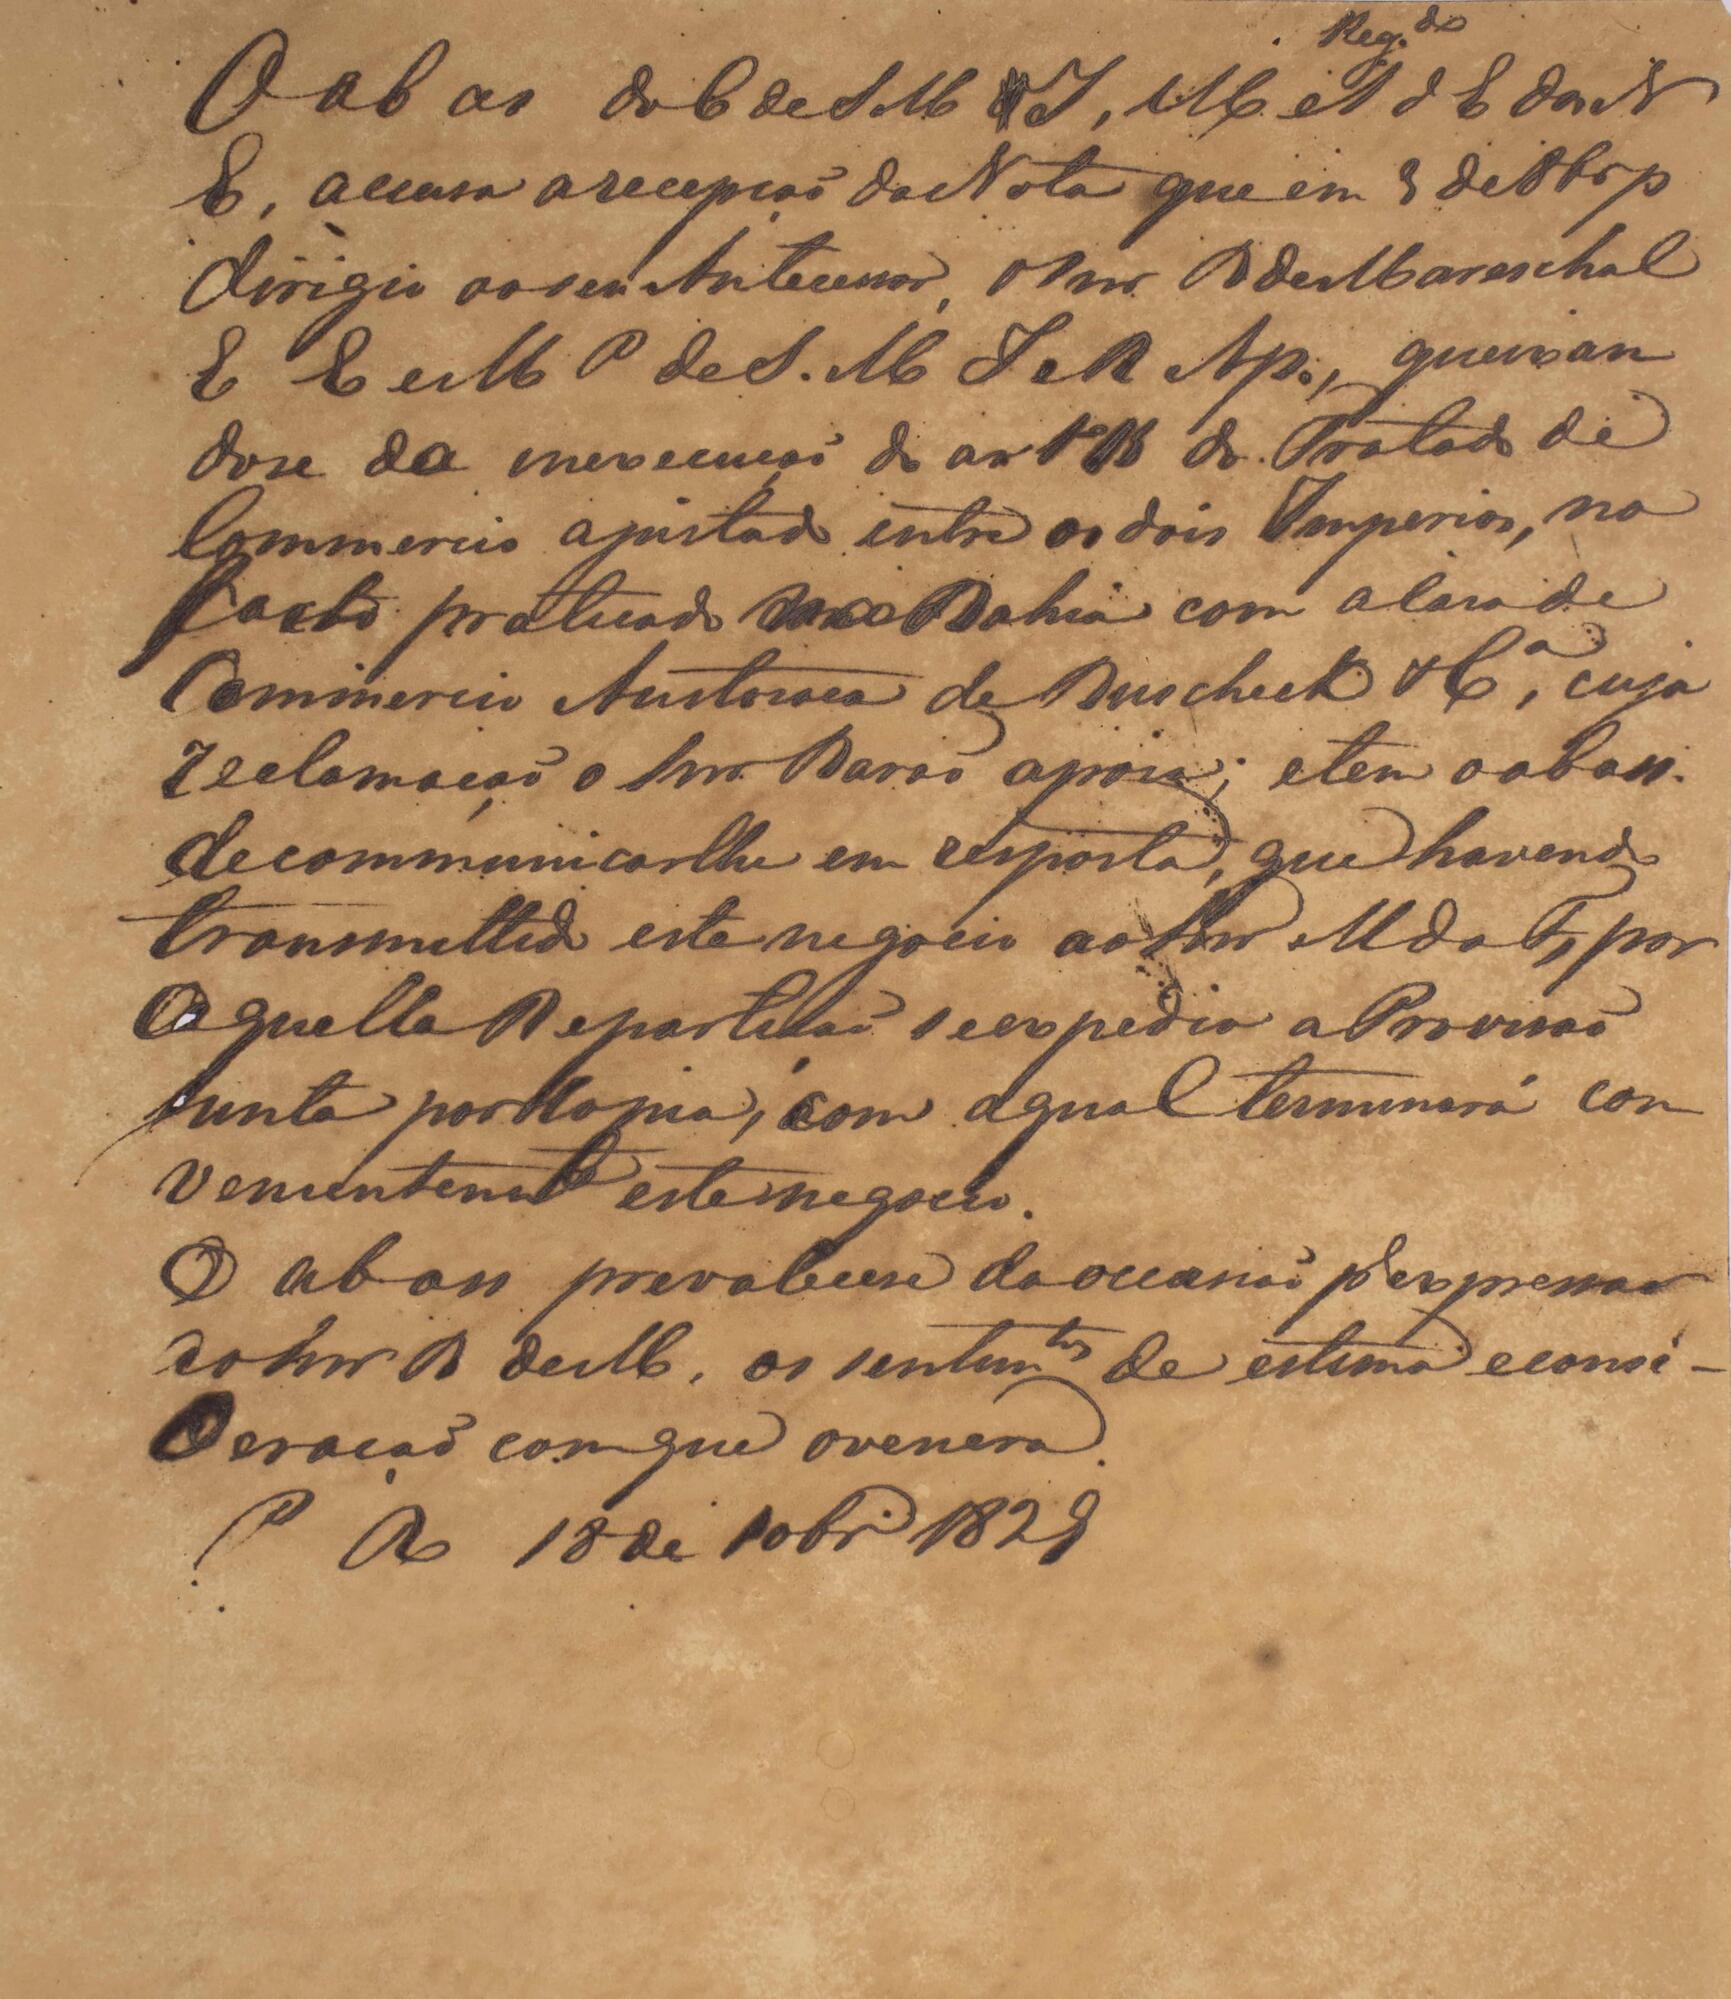 Reg.do
O abas do C de S M I, M e S d E dos N
E, accusa a recepção da Nota que em 3 de 8br p
dirigio ao seu Antecessor, o Snr B de Mareschal
E E e M P de S. M I e R Ap., queixan
dose da inexecução do art do Tratado de
Commercio ajustado entre os dois Imperios, no
facto praticado na Bahia com a Casa de
Commercio Austriaca de Buscheck & Cª, cuja
reclamação o Snr Barão apoia; e tem o abass.
de communicarlhe em resposta, que havendo
transmittido este negocio ao Snr M da F, por
Aquella Repartição se expedio a Provisão
junta por Copia, com a qual terminará con
venientemte este negocio.
O abass prevalecese da occasião p.ª expressar
ao Snr B de M. os sentimtos de estima e consi-
deração com que o venera.
P R 18 de 10bro 1829